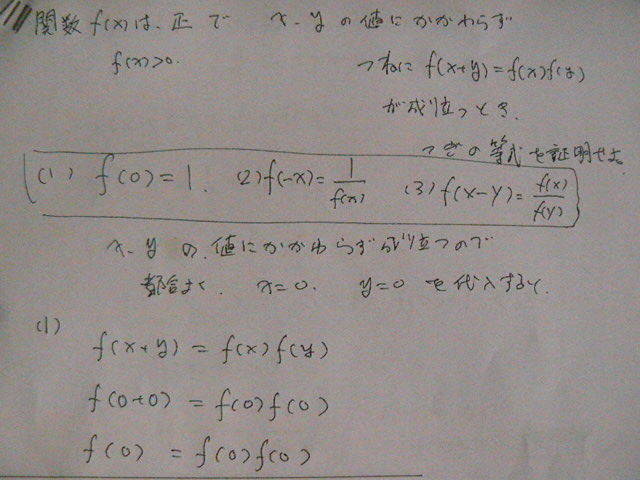 関数 f(x)は、正で x、yの値にかかわらず
f(x)>0. つねに f(x+y)=f(x)f(y)
が成り立つとき、
つぎの等式を証明せよ
(1) f(0)=1. (2) f(-x)=1/f(x) (3) f(x-y)=f(x)/f(y)
x、yの、値にかかわらず成り立つので
都合よく、x=0. y=0 を代入すると、
(1)
f(x+y) = f(x)f(y)
f(0+0) = f(0)f(0)
f(0) = f(0)f(0)